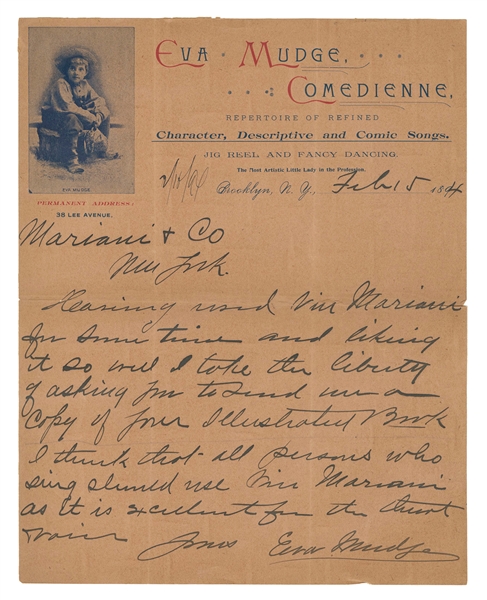 EVA MUDGE,
COMEDIENNE,
REPERTOIRE OF REFINED
Character, Descriptive and Comic Songs.
JIG REEL AND FANCY DANCING.
The Most Artistic Little Lady in the Profession.
EVA MUDGE
PERMANENT ADDRESS:
38 LEE AVENUE.
Brooklyn, N. Y., Feb 15 1894
Mariani & Co
New York.
Having used Vin Mariani
for some time and liking
it so well I take the liberty
of asking you to send me a
Copy of your Illustrated Book
I think that all persons who
sing should use Vin Mariani
as it is excellent for the
voice Yours Eva Mudge